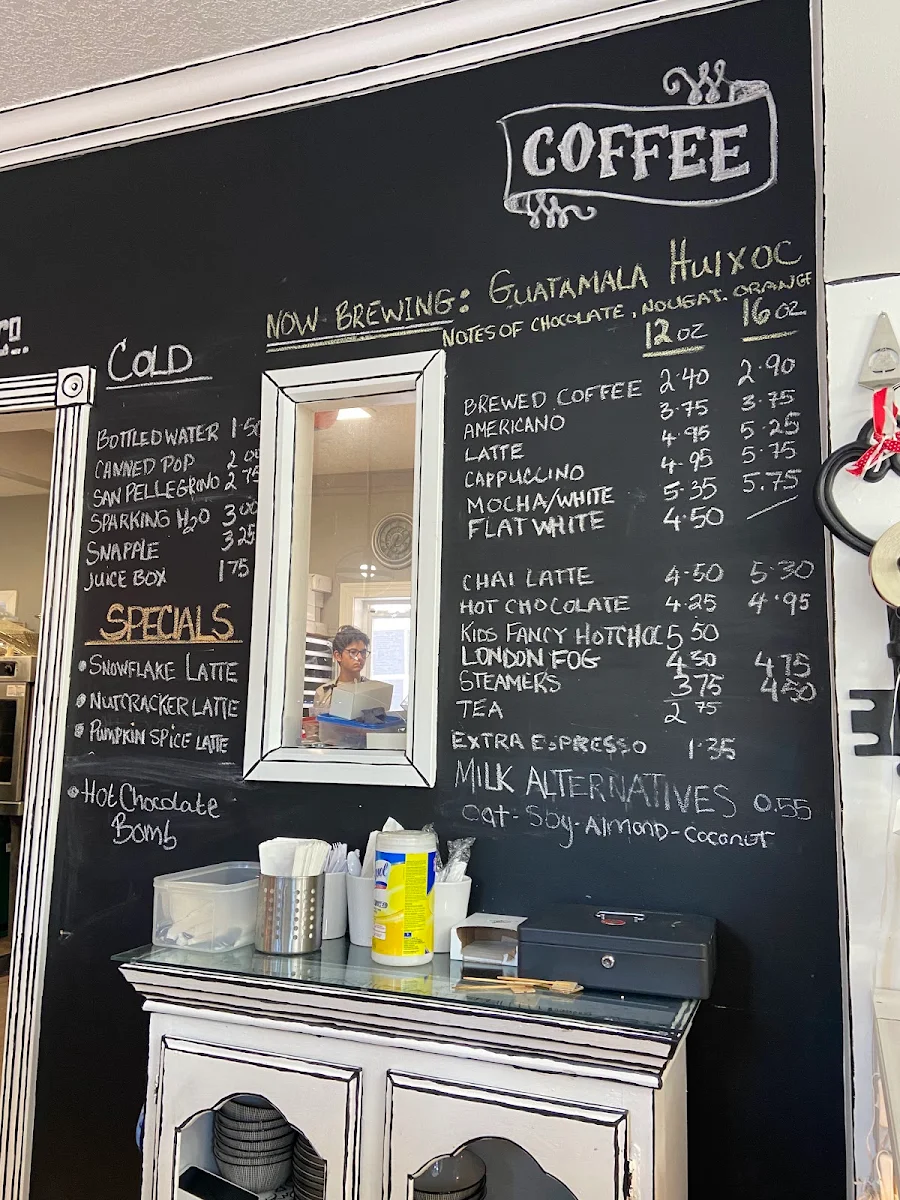 COFFEE
NOW BREWING: GUATAMALA HUIXOC
NOTES OF CHOCOLATE, NOUGAT. ORANGE
12 OZ 16 OZ
BREWED COFFEE 2.40 2.90
AMERICANO 3.75 3.75
LATTE 4.95 5.25
CAPPUCCINO 4.95 5.75
MOCHA/WHITE 5.35 5.75
FLAT WHITE 4.50 —
CHAI LATTE 4.50 5.30
HOT CHOCOLATE 4.25 4.95
KIDS FANCY HOTCHOC 5 50
LONDON FOG 4 50 4 75
STEAMERS 3 75 4 50
TEA 2 75
EXTRA ESPRESSO 1.35
MILK ALTERNATIVES 0.55
Oat-Soy-Almond-Coconut
Co.
COLD
BOTTLED WATER 1.50
CANNED POP 2 00
SAN PELLEGRINO 2 75
SPARKING H2O 3 00
SNAPPLE 3 25
JUICE BOX 1 75
SPECIALS
• SNOWFLAKE LATTE
• NUTCRACKER LATTE
• PUMPKIN SPICE LATTE
• Hot Chocolate
Bomb